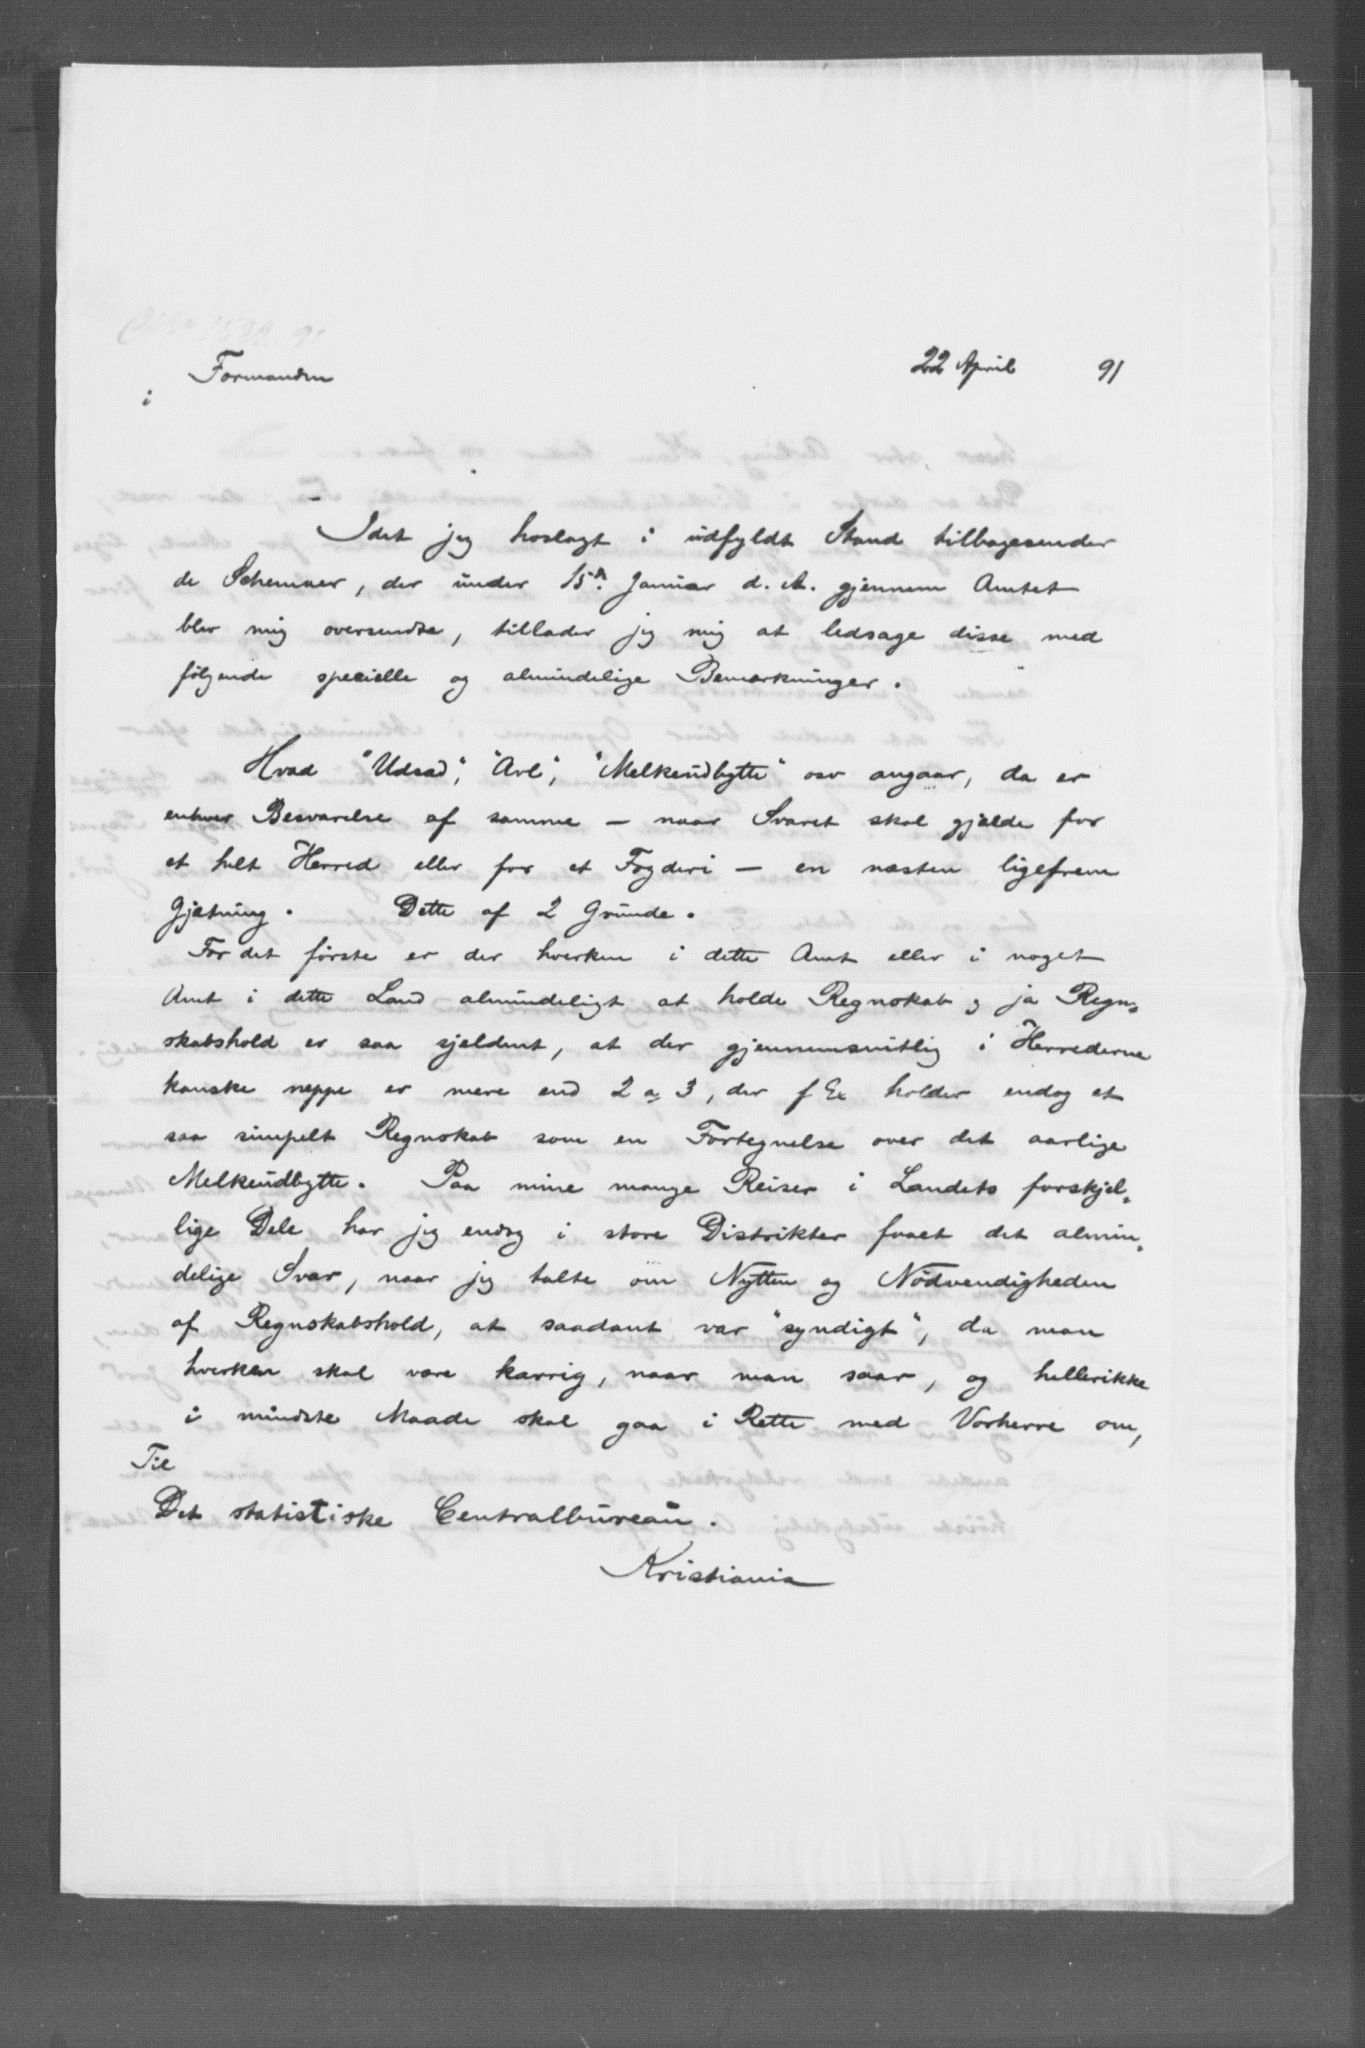 Formanden
22 April 91
i
Idet jeg hoslagt i udfyldt Stand tilbagesender
de Schemaer, der under 15de Januar d. A. gjennem Amtet
blev mig oversendte, tillader jeg mig at ledsage disse med
følgende specielle og almindelige Bemærkninger.
Hvad "Udsæd", "Avl", "Melkeudbytte" osv angaar, da er
enhver Besvarelse af samme — naar Svaret skal gjælde for
et helt Herred eller for et Fogderi — en næsten ligefrem
Gjætning. Dette af 2 Grunde.
For det første er der hverken i dette Amt eller i noget
Amt i dette Land almindeligt at holde Regnskab, ja Regn-
skabshold er saa sjeldent, at der gjennemsnitlig i Herrederne
kanske neppe er mere end 2 a 3, der f Ex holder endog et
saa simpelt Regnskab som en Fortegnelse over det aarlige
Melkeudbytte. Paa mine mange Reiser i Landets forskjel-
lige Dele har jeg endog i store Distrikter faaet det almin-
delige Svar, naar jeg talte om Nytten og Nødvendigheden
af Regnskabshold, at saadant var "syndigt", da man
hverken skal være karrig, naar man saar, og hellerikke
i mindste Maade skal gaa i Rette med Vorherre om,
Til
Det statistiske Centralbureau.
Kristiania